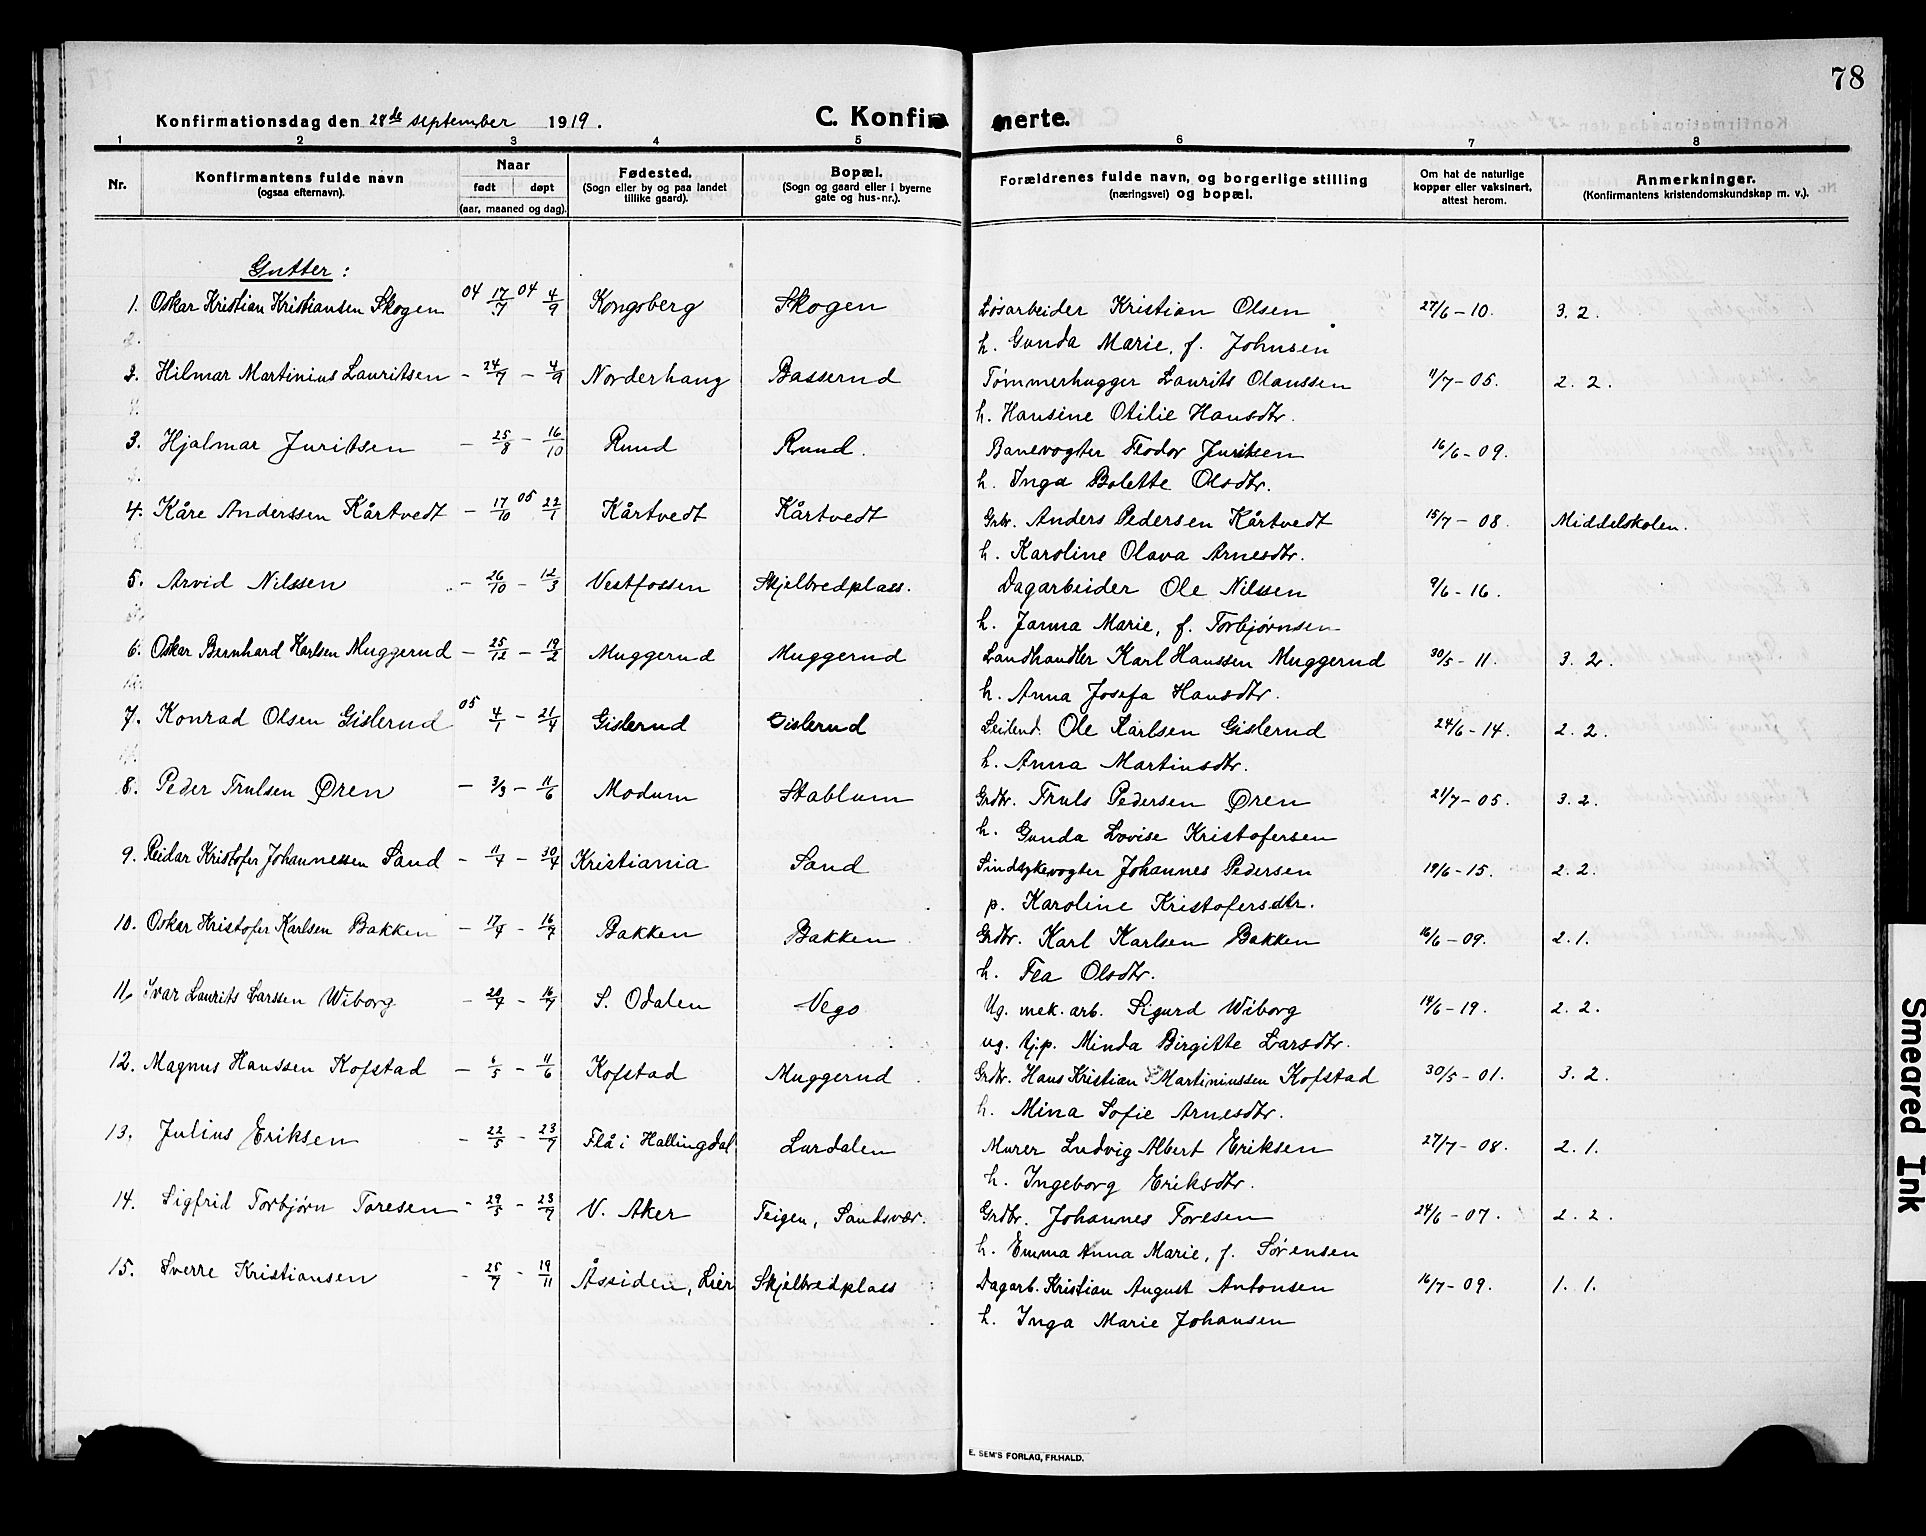 78
Konfirmationsdag den 28de september 1919.
C. Konfirmerte.
1 2 3 4 5 6 7 8
Nr.
Konfirmantens fulde navn (ogsaa efternavn).
Naar født døpt (aar, maaned og dag).
Fødested. (Sogn eller by og paa landet tillike gaard).
Bopæl. (Sogn og gaard eller i byerne gate og hus-nr.).
Forældrenes fulde navn, og borgerlige stilling (næringsvei) og bopæl.
Om hat de naturlige kopper eller vaksinert, attest herom.
Anmerkninger. (Konfirmantens kristendomskundskap m. v.).
Gutter:
1. Oskar Kristian Kristiansen Skogen 04 17/7 04 4/9 Kongsberg Skogen Løsarbeider Kristian Olsen 27/6-10. 3. 2.
h. Gunda Marie, f. Johnsen
2. Hilmar Martinius Lauritsen - 24/7 - 4/9 Norderhaug Basserud Tømmerhugger Laurits Olaussen 11/7-05. 2. 2.
h. Hansine Otilie Hansdtr.
3. Hjalmar Juritsen - 25/8 - 16/10 Ruud Ruud. Banevogter Flodor Juritsen 16/6-09.
h. Inga Bolette Olsdtr.
4. Kåre Anderssen Kårtvedt - 17/10 05 22/1 Kårtvedt Kårtvedt Grbr. Anders Pedersen Kårtvedt 15/7-08. Middelskolen.
h. Karoline Olava Arnesdtr.
5. Arvid Nilssen - 26/10 - 12/3 Vestfossen Skjelbredplass. Dagarbeider Ole Nilssen 9/6-16.
h. Janna Marie, f. Torbjørnsen
6. Oskar Bernhard Karlsen Muggerud - 25/12 - 19/2 Muggerud Muggerud Landhandler Karl Hanssen Muggerud 30/5-11. 3. 2.
h. Anna Josefa Hansdtr.
7. Konrad Olsen Gislerud 05 4/1 - 21/4 Gislerud Gislerud Leilend. Ole Karlsen Gislerud 24/6-14. 2. 2.
h. Anna Martinsdtr.
8. Peder Trulsen Øren - 3/3 - 11/6 Modum Stablum Grdbr. Truls Pedersen Øren 21/7-05. 3. 2.
h. Gunda Lovise Kristofersen
9. Reidar Kristofer Johannessen Sand - 11/4 - 30/4 Kristiania Sand Sindsykevogter Johannes Pedersen 19/6-15. 2. 2.
p. Karoline Kristofersdtr.
10. Oskar Kristofer Karlsen Bakken - 17/4 - 16/7 Bakken Bakken Grdbr. Karl Karlsen Bakken 16/6-09. 2. 1.
h. Fea Olsdtr.
11. Ivar Laurits Larssen Wiborg - 20/4 - 16/7 S. Odalen Vego Ug. mek. arb. Sigurd Wiborg 14/6-19. 2. 2.
ug. tjp. Minda Birgitte Larsdtr.
12. Magnus Hanssen Kofstad - 6/5 - 11/6 Kofstad Muggerud Grdbr. Hans Kristian Martiniussen Kofstad 30/5-01. 3. 2.
h. Mina Sofie Arnesdtr.
13. Julius Eriksen - 22/5 - 23/7 Flå i Hallingdal Lurdalen Murer Ludvig Albert Eriksen 27/7-08. 2. 1.
h. Ingeborg Eriksdtr.
14. Sigfrid Torbjørn Toresen - 29/5 - 23/7 V. Aker Teigen, Sandsvær. Grdbr. Johannes Toresen 24/6-07. 2. 2.
h. Emma Anna Marie, f. Sørensen
15. Sverre Kristiansen - 25/7 - 19/11 Åssiden, Lier Skjelbredplass Dagarb. Kristian August Antonsen 16/7-09. 1. 1.
h. Inga Marie Johansen
E. SEM'S FORLAG, FR.HALD.
Smeared Ink